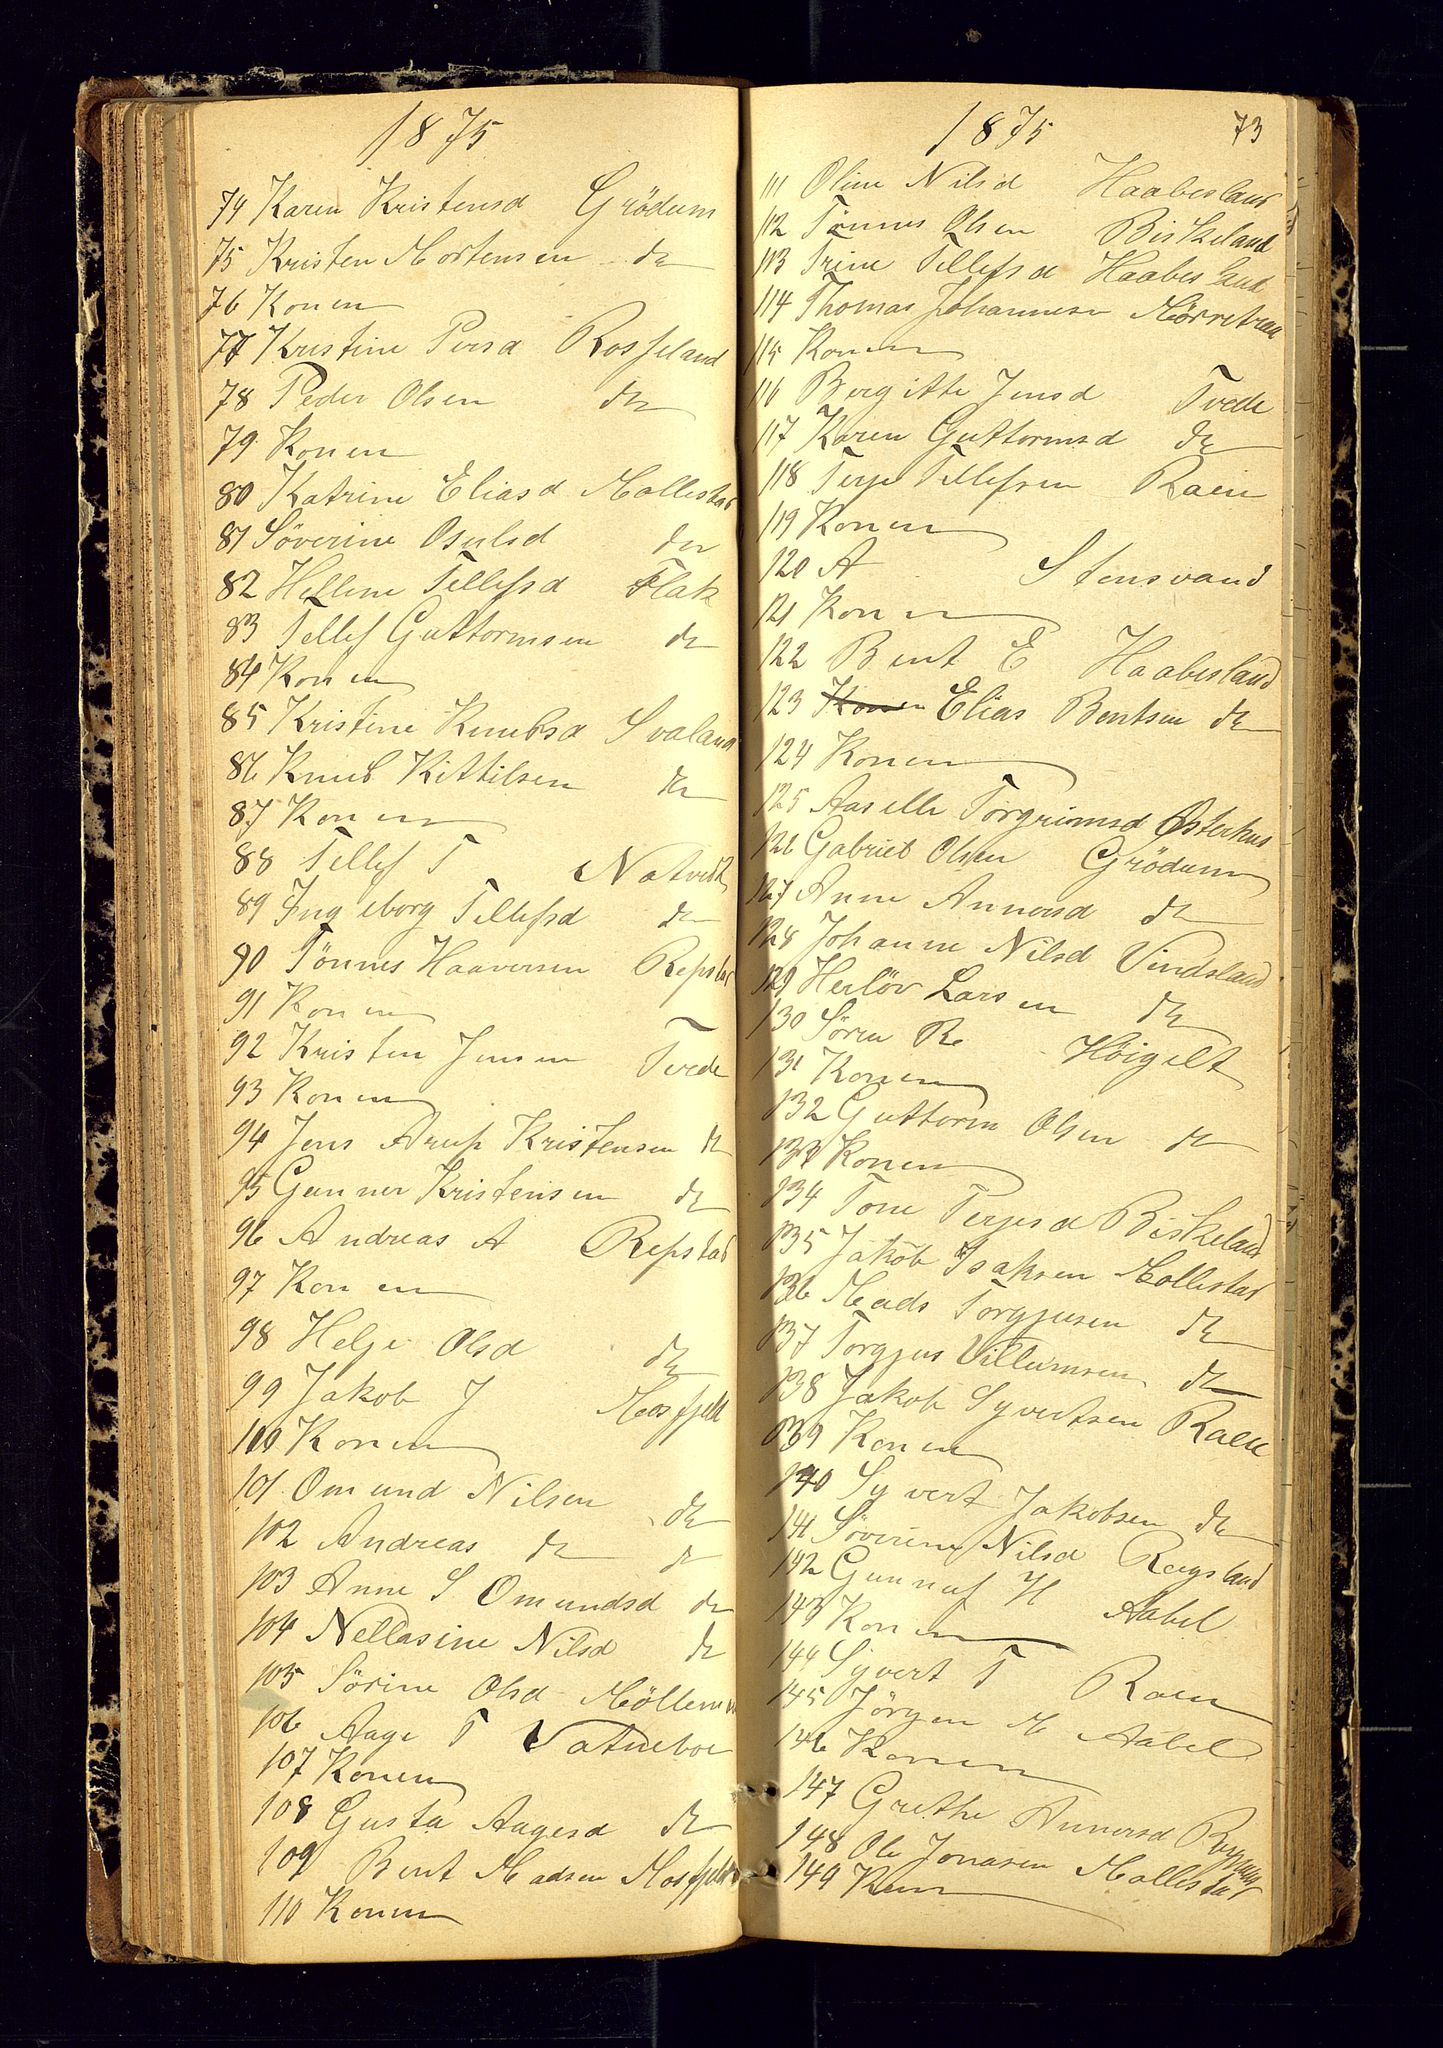 1875
74 Karen Kristensd Grödum
75 Kristen Mortensen do
76 Konen
77 Kristine Persd Rosseland
78 Peder Olsen do
79 Konen
80 Katrine Eliasd Mollestad
81 Söverine Osulsd do
82 Hellene Tellefsd Flak
83 Tellef Guttormsen do
84 Konen
85 Kristine Knubsd Svaland
86 Knub Kittilsen do
87 Konen
88 Tellef T
89 Ingeborg Tellefsd do
90 Tönnes Haaversen Repstad
91 Konen
92 Kristen Jensen Tvede
93 Konen
94 Jens Arup Kristensen do
95 Gunner Kristensen do
96 Andreas A Repstad
97 Konen
98 Helje Olsd do
99 Jakob J Mosfjeld
100 Konen
101 Omund Nilsen do
102 Andreas do do
103 Anne S Omundsd do
104 Nellasine Nilsd do
105 Sörine Olsd
106 Aage T
107 Konen
108 Gusta Aagesd do
109 Bent Madsen Mosfjeld
110 Konen
1875 73
111 Oline Nilsd Haabesland
112 Tönnes Olsen Biskeland
113 Trine Tellefsd Haabesland
114 Thomas Johannesen
115 Konen
116 Bergitte Jensd Tvede
117 Karen Guttormsd do
118 Terje Tellefsen Raen
119 Konen
120 A Stensvand
121 Konen
122 Bent E Haabesland
123 Konen Elias Bentsen do
124 Konen
125 Aaselle Torgrimsd Østerhus
126 Gabriel Olsen Grödum
127 Anne Annersd do
128 Johanne Nilsd Vindsland
129 Herlöv Larsen do
130 Sören R Höigilt
131 Konen
132 Guttorm Olsen do
133 Konen
134 Tone Terjesd Biskeland
135 Jakob Isaksen Mollestad
136 Mads Torgjusen do
137 Torgjus Villumsen do
138 Jakob Syvertsen Raen
139 Konen
140 Syvert Jakobsen do
141 Söverine Nilsd Rægsland
142 Gunnuf H Aabel
143 Konen
144 Syvert T Raen
145 Jörgen M Aabel
146 Konen
147 Grethe Annersd
148 Ole Jonasen Mollestad
149 Kun